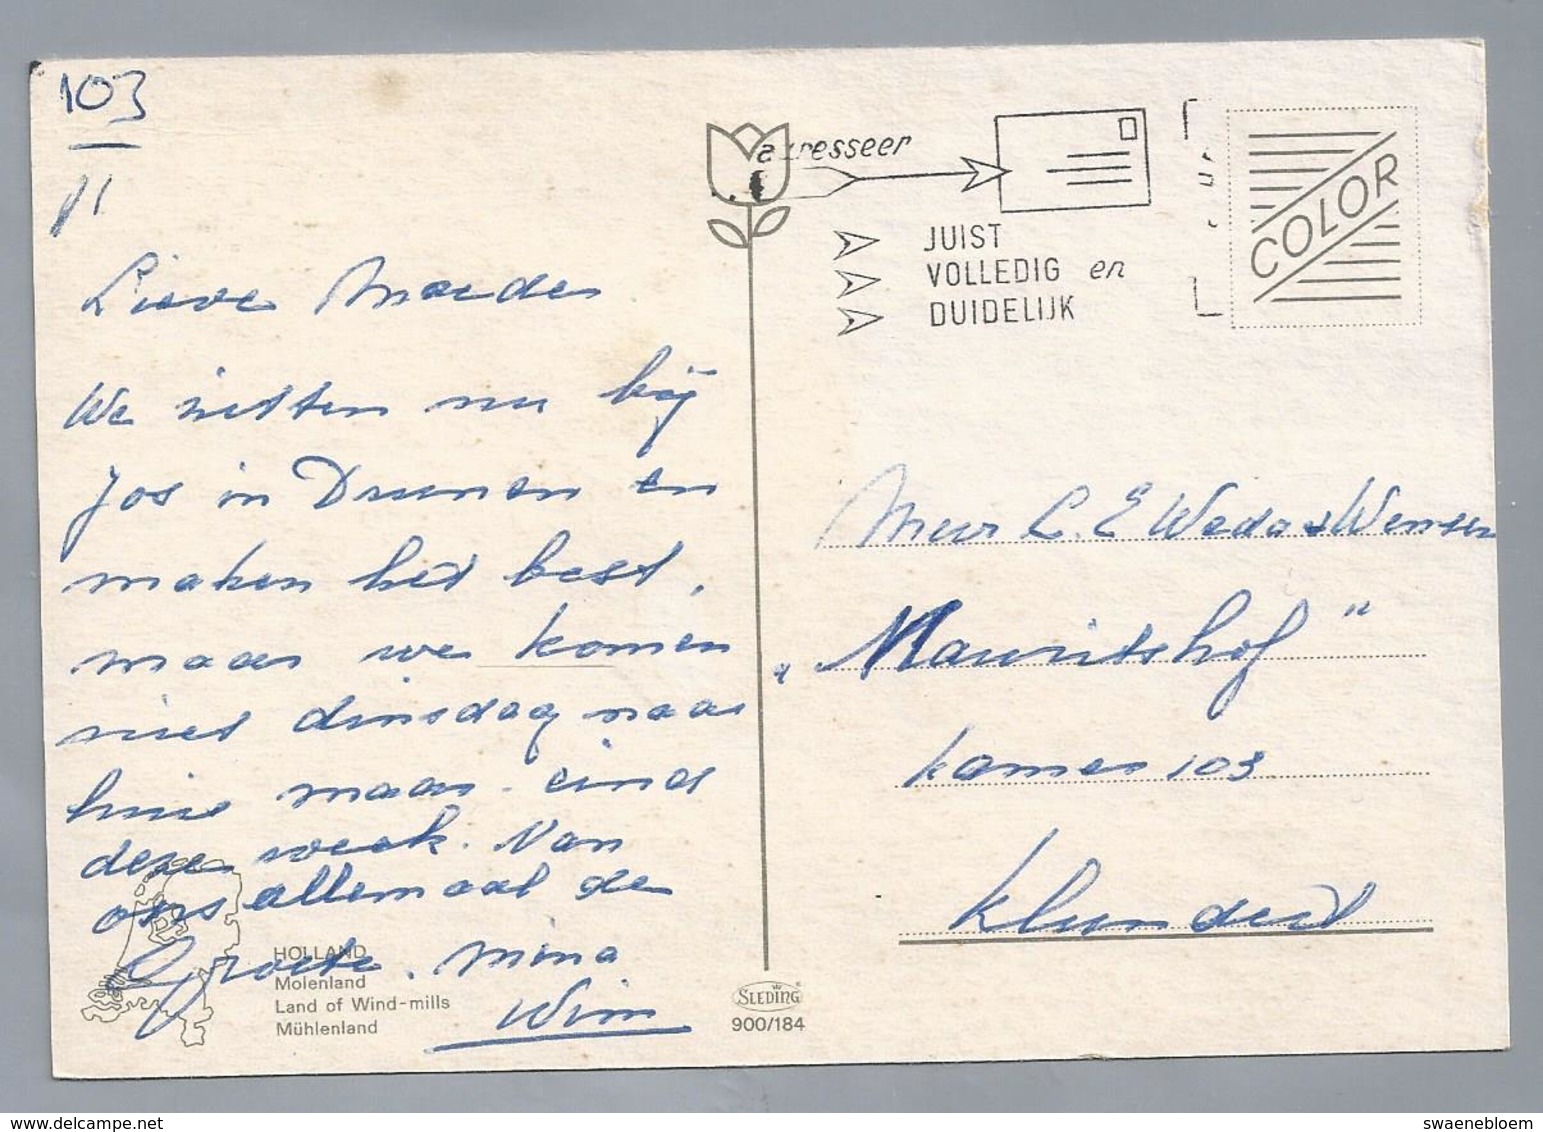 103
Lieve Moeder
We zitten nu bij
Jos in Drunen en
maken het best,
maar we komen
niet dinsdag naar
huis maar eind
deze week. Van
ons allemaal de
Groete. Mina
Wim
HOLLAND
Molenland
Land of Wind-mills
Mühlenland
SLEDING
900/184
adresseer
JUIST
VOLLEDIG en
DUIDELIJK
COLOR
Mevr L. E Weda
„Mauritshof"
kamer 103
Klundert
swaenebloem